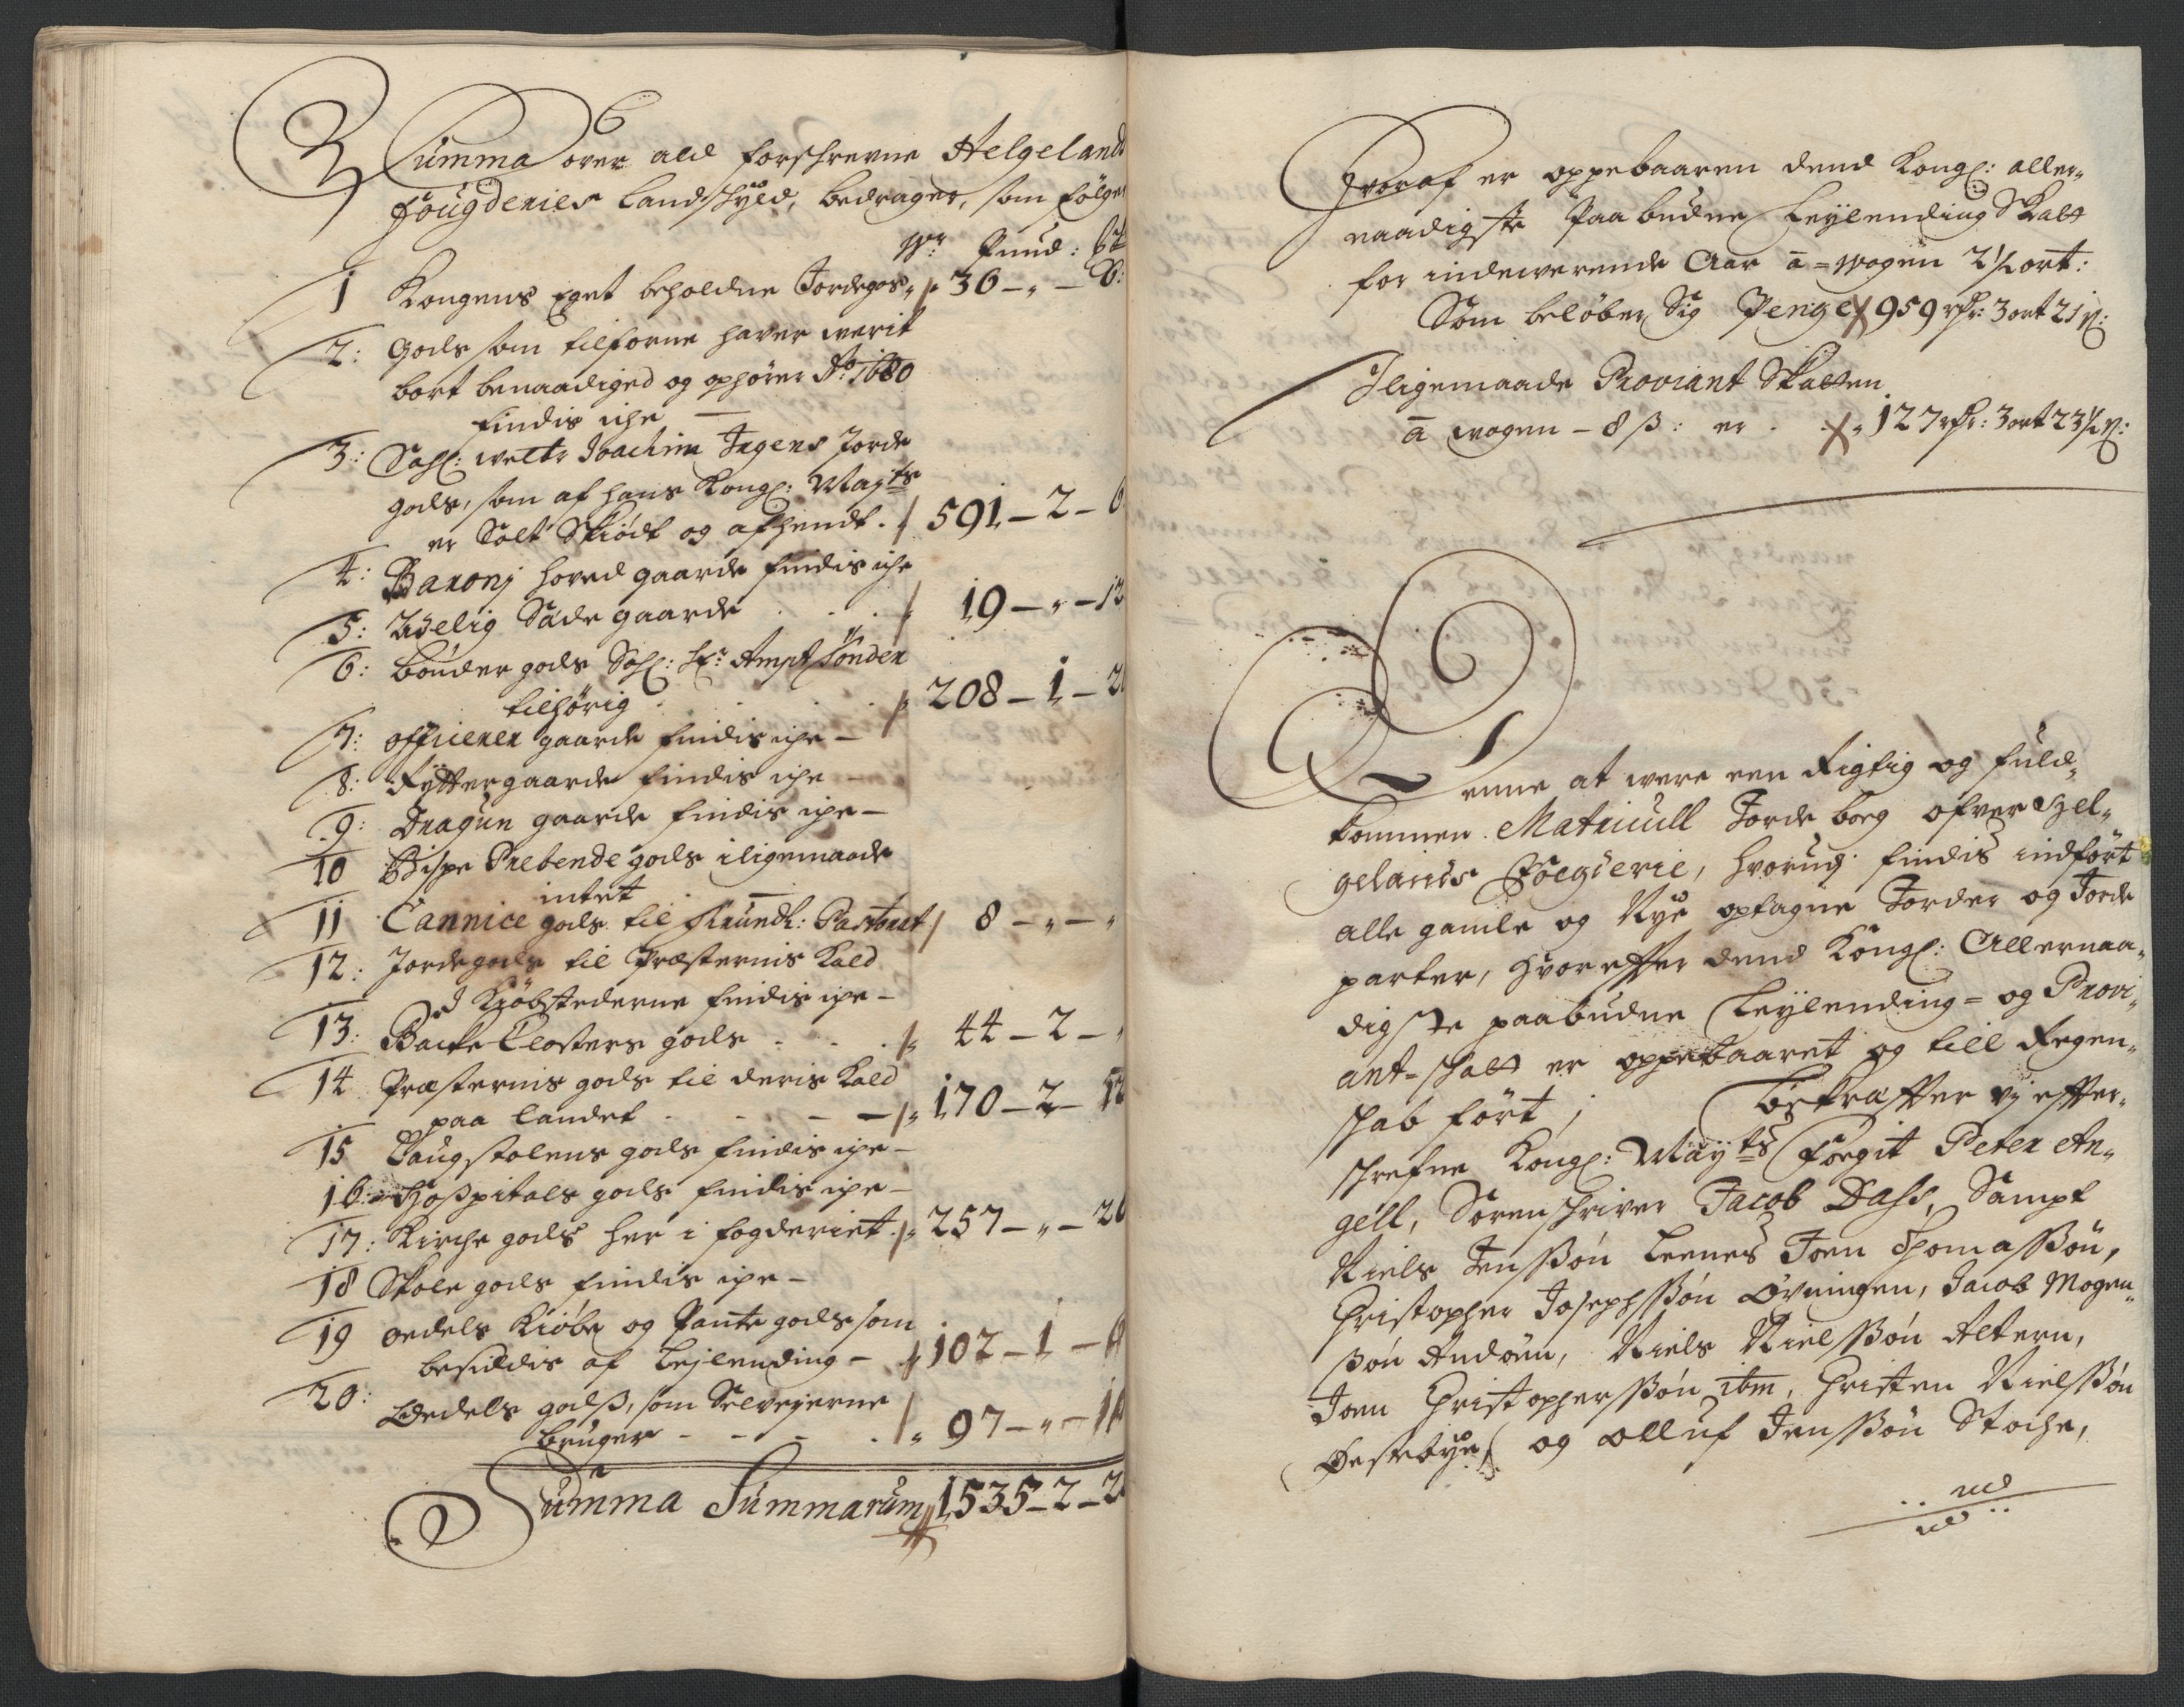 Summa over ald forschrevne Helgelands
fougderies landschyld, bedrager, som følger
Wr: Pund:
1 Kongens Eget beholdne Jordegos 36 – „ – 6:
2: Gods som tilforne haver werit
bort benaadiged og ophører Ao: 1680
findis iche –
3: Sahl: wettr Joachim Irgens Jorde
gods, som af hans Kongl: Mayts
er Solt Skiødt og afhendt. 591 – 2 – 6
4: Baronj hoved gaarde findis iche
5: Adelig Sæde gaarde . . . 19 – „ – 12
6: bønder gods Sahl: Hr: Ampt
tilhørig . . . . 208 – 1 – 2
7: officerer gaarde findis iche –
8: Ryttergaarde findis iche –
9: Dragun gaarde findis iche –
10 Bispe Prebende gods iligemaade
intet –
11 Cannice gods til Pastorat 8 – „ – „
12: Jordegods til Præsternis Kald
I Kiøbstederne findis iche –
13: Backe Closters gods . . . 44 – 2 – „
14 Præsternis gods til deris Kald
paa landet . – – – 170 – 2 – 12
15 Laugstolens gods findis iche –
16: Hospitals gods findis iche –
17: Kirche gods her i fogderiet. 257 – „ – 20
18 Skole gods findis iche –
19 oedels Kiøbe og Pante gods som
besiddis af Leylending – 102 – 1 –
20: Oedels gods, som Selvejerne
bruger – – – . 97 – „ – 1
Summa Summarum 1535 – 2 – 2
Hvoraf er oppebaaren dend Kongl: aller„
naadigste Paabudne Leylending Skatt
for indewerende Aar ā = wogen 2½ ort:
Som beløber Sig Penge 959 rdr: 3 ort 21 s:
Iligemaade Proviant Skatten
ā wogen – 8 ß: er . . 127 rdr: 3 ort 23½ s:
Denne at were een Rigtig og fuld„
kommen Matricull Jorde bog ofver Hel„
gelands Foegderie, hvorudj findis indført
alle gamle og Nye optagne Jorder og Jorde
parter, hvorefter dend Kongl: Allernaa„
digste paabudne Leylending= og Provi„
ant=schatt er oppebaaret og till Regen„
schab ført; Bekræfter vj efter„
schrefne Kongl: Mayts Foegit Peter An„
gell, Sorenschriver Jacob Dass, Sampt
Niels Jenssøn Leenes Joen Thomassøn,
Christopher Josephssøn Øvningen, Jacob Mogen„
søn Andøen, Niels Nielssøn Altern,
Joen Christopherssøn ibm, Christen Nielssøn
Østebye, og Olluf Jenssøn Stoche,